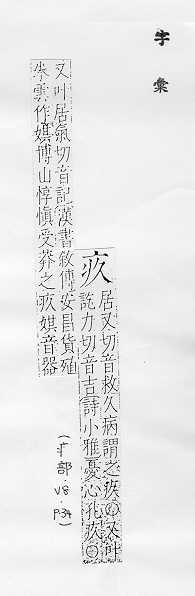 字彙
疚
居又切音救久病謂之疚○又叶
訖力切音吉詩小雅憂心孔疚○
又叶居氣切音記漢書敘傳安昌貨殖
朱雲作娸博山惇愼受莽之疚娸音器
(疒部.V8.P34)